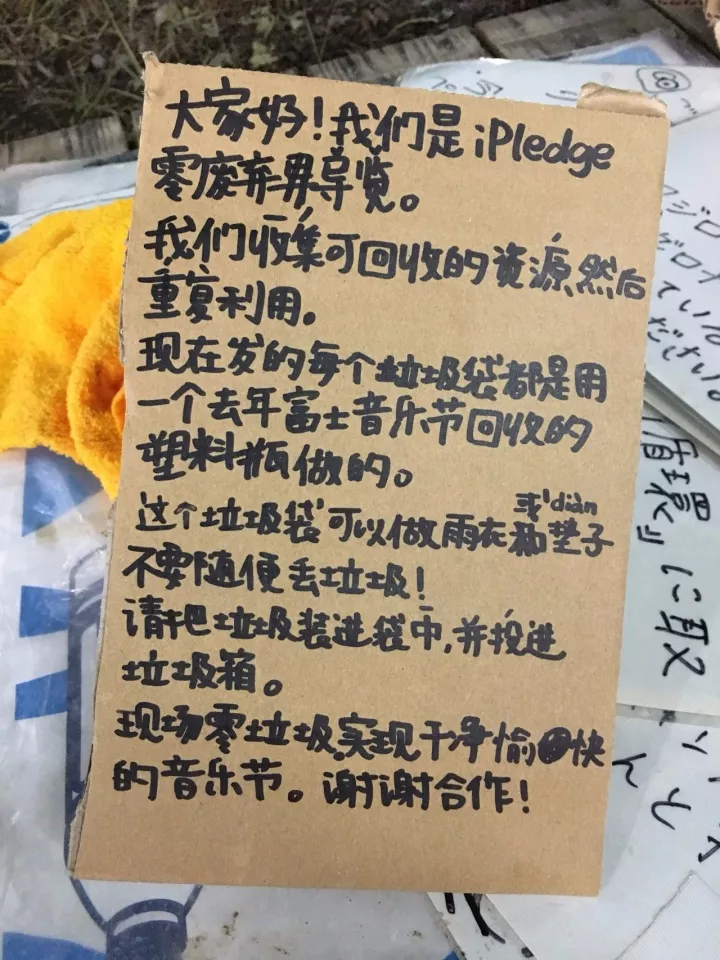 大家好！我们是iPledge
零废弃导览。
我们收集可回收的资源,然后
重复利用。
现在发的每个垃圾袋都是用
一个去年富士音乐节回收的
塑料瓶做的。
或 diàn
这个垃圾袋可以做雨衣和垫子
不要随便丢垃圾！
请把垃圾装进袋中,并投进
垃圾箱。
现场零垃圾,实现干净愉快
的音乐节。谢谢合作！
循環」に取
ている
ださい